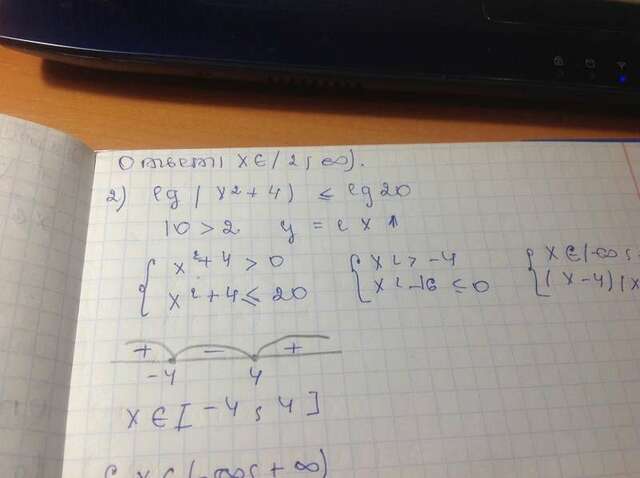 Ответ: x∈(2; ∞).
2) lg(x²+4) ≤ lg20
10 > 2 y = x ↑
{ x²+4 > 0 { x² > -4 { x∈(-∞;
{ x²+4 ≤ 20 { x²-16 ≤ 0 { (x-4)(x
+ - +
-4 4
x∈[-4; 4]
{ x∈(-∞; +∞)